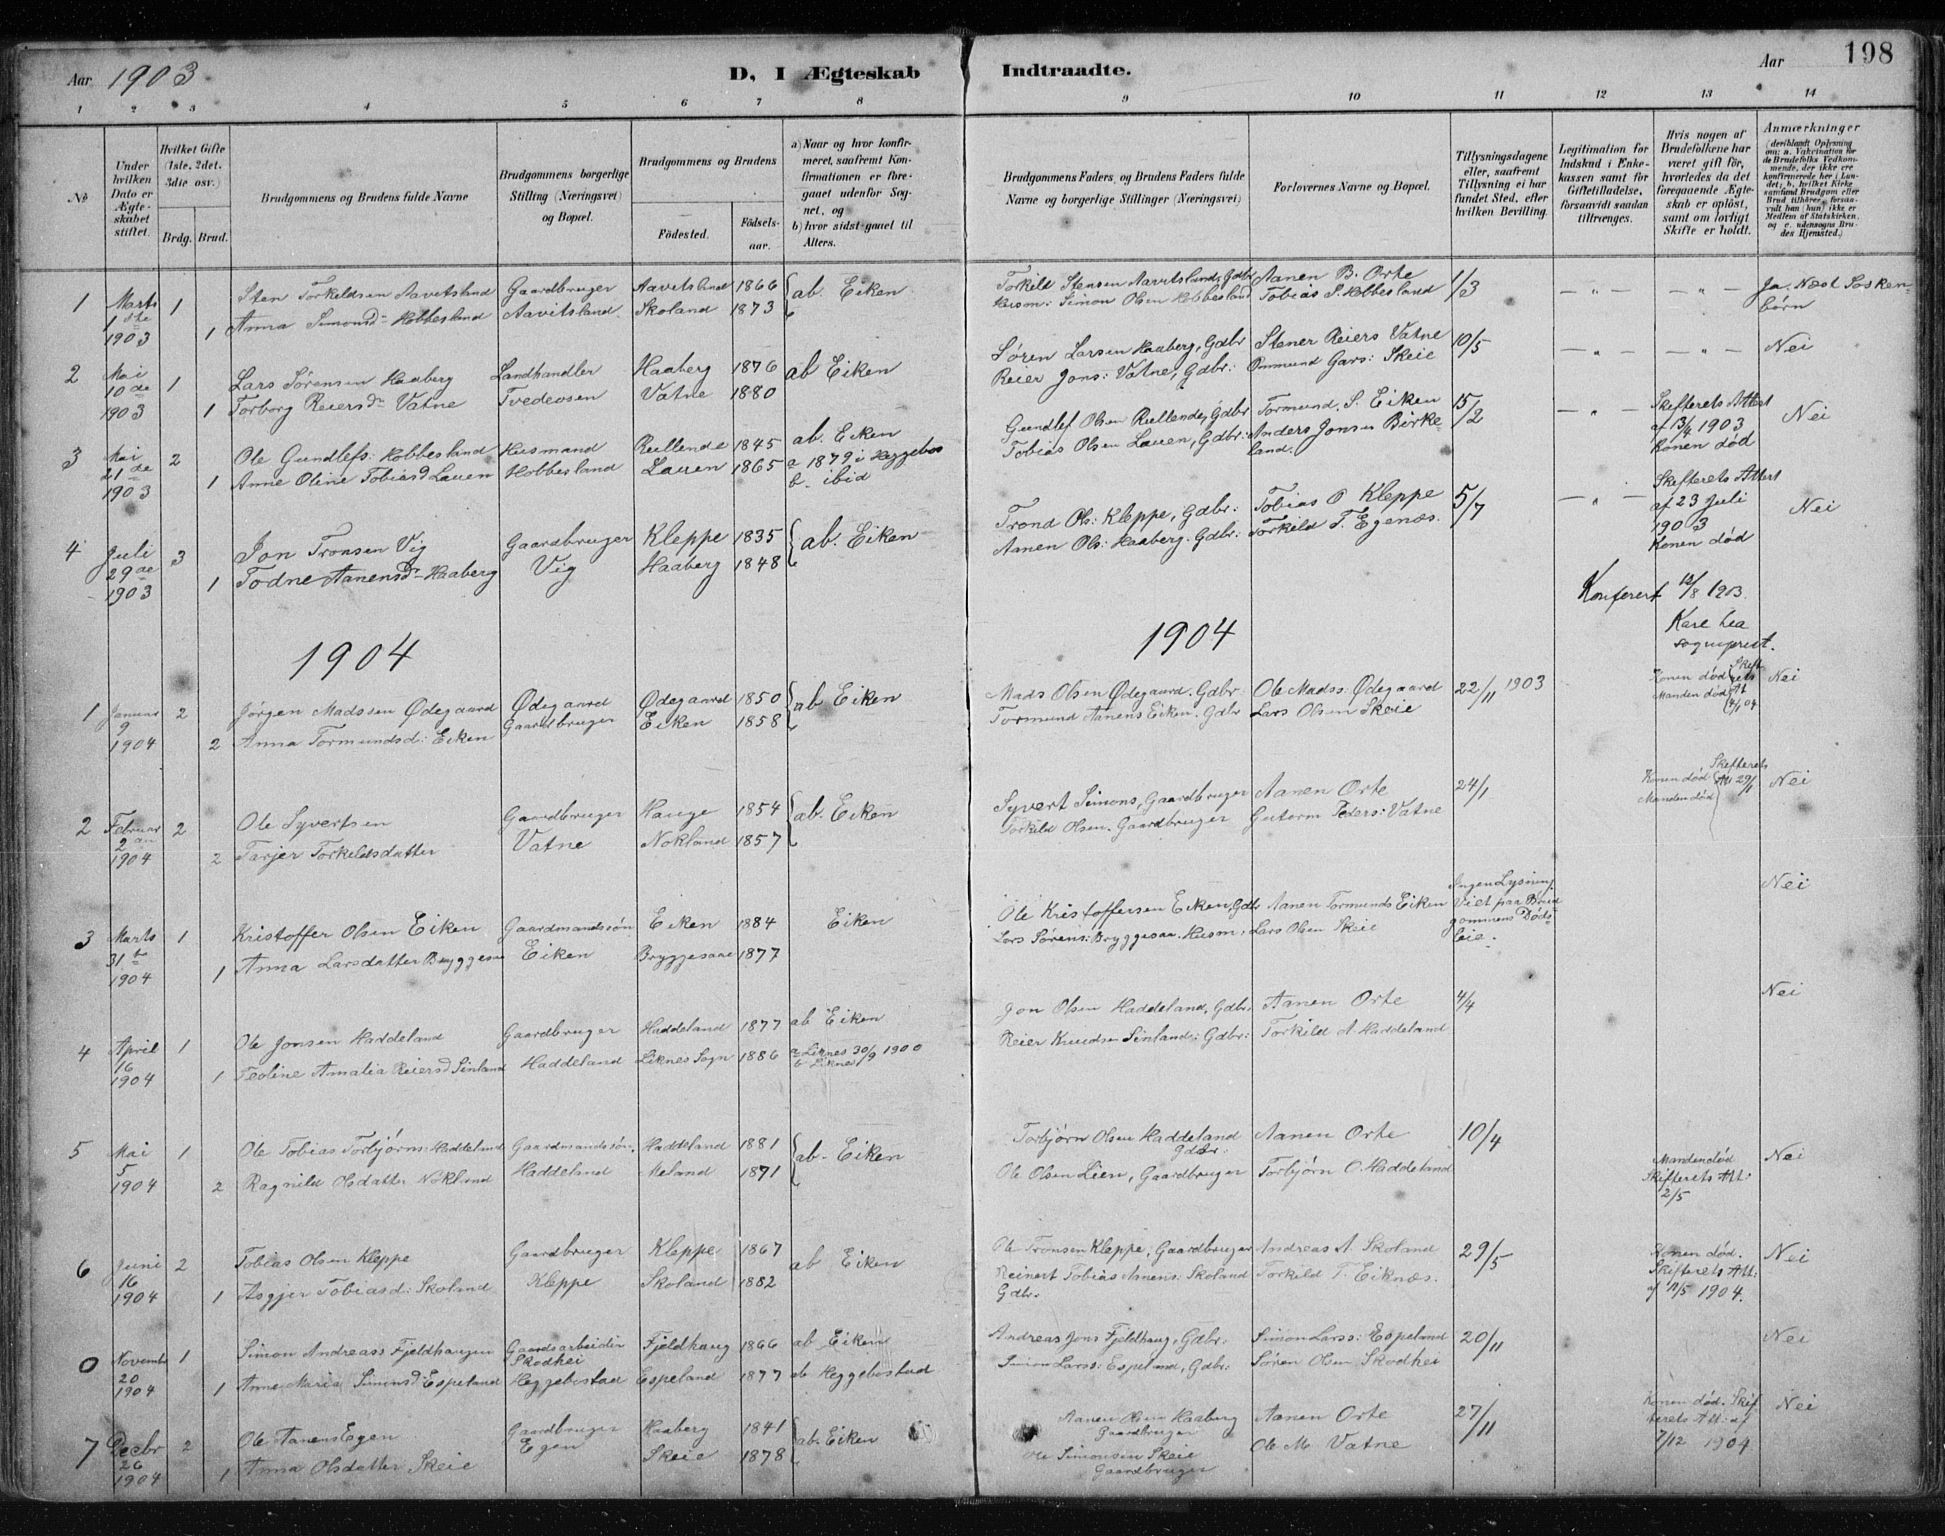 Aar 1903
D, I Ægteskab Indtraadte.
Aar
198
1 2 3 4 5 6 7 8 9 10 11 12 13 14
No
Under hvilken Dato er Ægteskabet stiftet.
Hvilket Gifte (1ste, 2det, 3die osv.)
Brdg. Brud.
Brudgommens og Brudens fulde Navne
Brudgommens borgerlige Stilling (Næringsvei) og Bopæl.
Brudgommens og Brudens
Fødested. Fødselsaar.
a) Naar og hvor konfirmeret, saafremt Konfirmationen er foregaaet udenfor Sognet, og
b) hvor sidst gaaet til Alters.
Brudgommens Faders, og Brudens Faders fulde Navne og borgerlige Stillinger (Næringsvei)
Forlovernes Navne og Bopæl.
Tillysningsdagene eller, saafremt Tillysning ei har fundet Sted, efter hvilken Bevilling.
Legitimation for Indskud i Enkekassen samt for Giftetilladelse, forsaavidt saadan tiltrænges.
Hvis nogen af Brudefolkene har været gift før, hvorledes da det foregaaende Ægteskab er opløst, samt om lovligt Skifte er holdt.
Anmærkninger (deriblandt Oplysning om: a. Vakcination for de Brudefolks Vedkommende, der ikke ere konfirmerede her i Landet; b. hvilket Kirkesamfund Brudgom eller Brud tilhører, forsaavidt han (hun) ikke er Medlem af Statskirken, og c. udensogns Brudes Hjemsted.)
1 Marts 1ste 1903 1 Sten Torkeldsen Aavitsland Gaardbruger Aavitsland 1866 ab. Eiken Torkild Stensen Aavitsland, Gdbr Aanen B. Orte 1/3 — " — — " — Ja. Næst Søskenbörn
1 Anna Simonsd: Hobbesland Aavitsland. Skoland 1873 Husm: Simon Olsen Hobbesland Tobias S. Hobbesland
2 Mai 10de 1903 1 Lars Sørensen Haaberg Landhandler Haaberg 1876 ab Eiken Søren Larsen Haaberg, Gdbr Stener Reiers Vatne 10/5 — " — — " — Nei
1 Torborg Reiersdr Vatne Tvedeosen Vatne 1880 Reier Jons: Vatne, Gdbr: Ommund Gars: Skeie
3 Mai 21de 1903 2 Ole Gundlefs: Hobbesland Husmand Rullende 1845 ab. Eiken Gundlef Olsen Rullende, Gdbr Tormund. S. Eiken 15/2 — " — Skifterets Attest af 13/4 1903 Konen död Nei
1 Anne Oline Tobiasd Lauen Hobbesland Lauen 1865 a 1879 i Heggebos b. ibid Tobias Olsen Lauen, Gdbr: Anders Jonsen Birkeland.
4 Juli 29de 1903 3 Jon Tronsen Vig Gaardbruger Kleppe 1835 ab. Eiken Trond Ols: Kleppe, Gdbr: Tobias O Kleppe 5/7 — " — Skifterets Attest af 23 Juli 1903 Konen död Nei
1 Todne Aanensdr Haaberg Vig Haaberg 1848 Aanen Ols: Haaberg. Gdbr: Torkild T. Egenæs.
Konferert 12/8 1903.
Kare Lea
sogneprest.
1904 1904
1 Januar 9 1904 2 Jørgen Madssen Ødegaard Ødegaard Ødegaard 1850 ab Eiken Mads Olsen Ødegaard. Gdbr: Ole Madss: Ødegaard 22/11 1903 Konen död Manden död Skifterets At 4/1 04 Nei
2 Anna Tormundsd: Eiken Gaardbruger Eiken 1858 Tormund Aanens Eiken. Gdbr Lars Olsen Skeie
2 Februar 2den 1904 2 Ole Syvertsen Gaardbruger Hauge 1854 ab. Eiken Syvert Simons, Gaardbruger Aanen Orte 24/1 Konen död Manden död Skifterets At 29/1 Nei
2 Tarjer Torkildsdatter Vatne Nokland 1857 Torkild Olsen. Gaardbruger Gutorm Peders: Vatne
3 Marts 31te 1904 1 Kristoffer Olsen Eiken Gaardmandssön Eiken 1884 Eiken Ole Kristoffersen Eiken, Gdbr Aanen Tormunds Eiken Ingen Lysning. Viet paa Brudgommens Dödsleie. Nei
1 Anna Larsdatter Bryggesaa Eiken Bryggesaae 1877 Lars Sørens: Bryggesaa. Husm: Lars Olsen Skeie
4 April 16 1904 1 Ole Jonsen Haddeland Gaardbruger Haddeland 1877 ab Eiken Jon Olsen Haddeland, Gdbr, Aanen Orte 4/4 Nei
1 Teoline Amalia Reiersd Sinland Haddeland Liknes Sogn 1886 a Liknes 30/9 1900 b Liknes Reier Knudsen Sinland: Gdbr: Torkild A. Haddeland
5 Mai 5 1904 1 Ole Tobias Torbjörns: Haddeland Gaardmandssön. Haddeland 1881 ab. Eiken Torbjørn Olsen Haddeland Gdbr: Aanen Orte 10/4 Manden död Skifterets Att: 2/5 Nei
2 Ragnild Olsdatter Nokland Haddeland Meland 1871 Ole Olsen Lien, Gaardbruger Torbjörn O. Haddeland
6 Juni 16 1904 2 Tobias Olsen Kleppe Gaardbruger Kleppe 1867 ab Eiken Ole Tronsen Kleppe, Gaardbruger Andreas A. Skoland 29/5 Konen död. Skifterets Att: af 11/5 1904. Nei
1 Asgjer Tobiasd: Skoland Kleppe Skoland 1882 Reinert Tobias Amens: Skoland Gdbr. Torkild T. Eiknæs.
0 Novembr 20 1904 1 Simon Andreass Fjeldhaugen Gaardsarbeider Skodhei Fjeldhaug 1866 ab Eiken Andreas Jons Fjeldhaug, Gdbr: Simon Larss: Espeland 20/11 Nei
1 Anne Maria Simonsd: Espeland Heggebostad Espeland 1877 ab Heggebostad Simon Larss: Espeland, Gdbr: Søren Olsen Skodhei
7 Decbr 26 1904 2 Ole Aanens Egen Gaardbruger Haaberg 1841 ab. Eiken Aanen Olsen Haaberg Gaardbruger Aanen Orte 27/11 Konen död. Skifterets Att: af 7/12 1904 Nei
1 Anna Olsdatter Skeie Egen Skeie 1878 Ole Simonsen Skeie Gaardbruger Ole M. Vatne